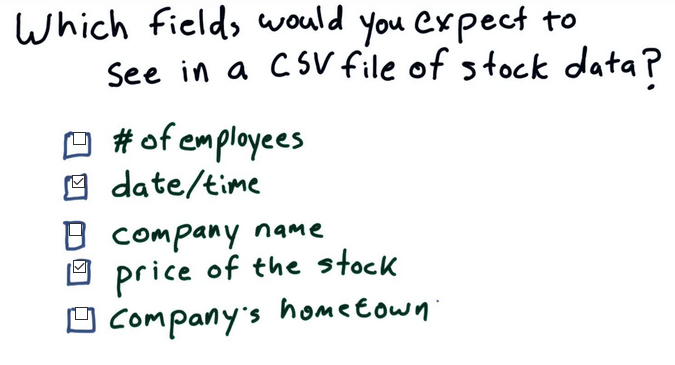 Which fields would you expect to
see in a CSV file of stock data?
# of employees
date/time
company name
price of the stock
company's hometown